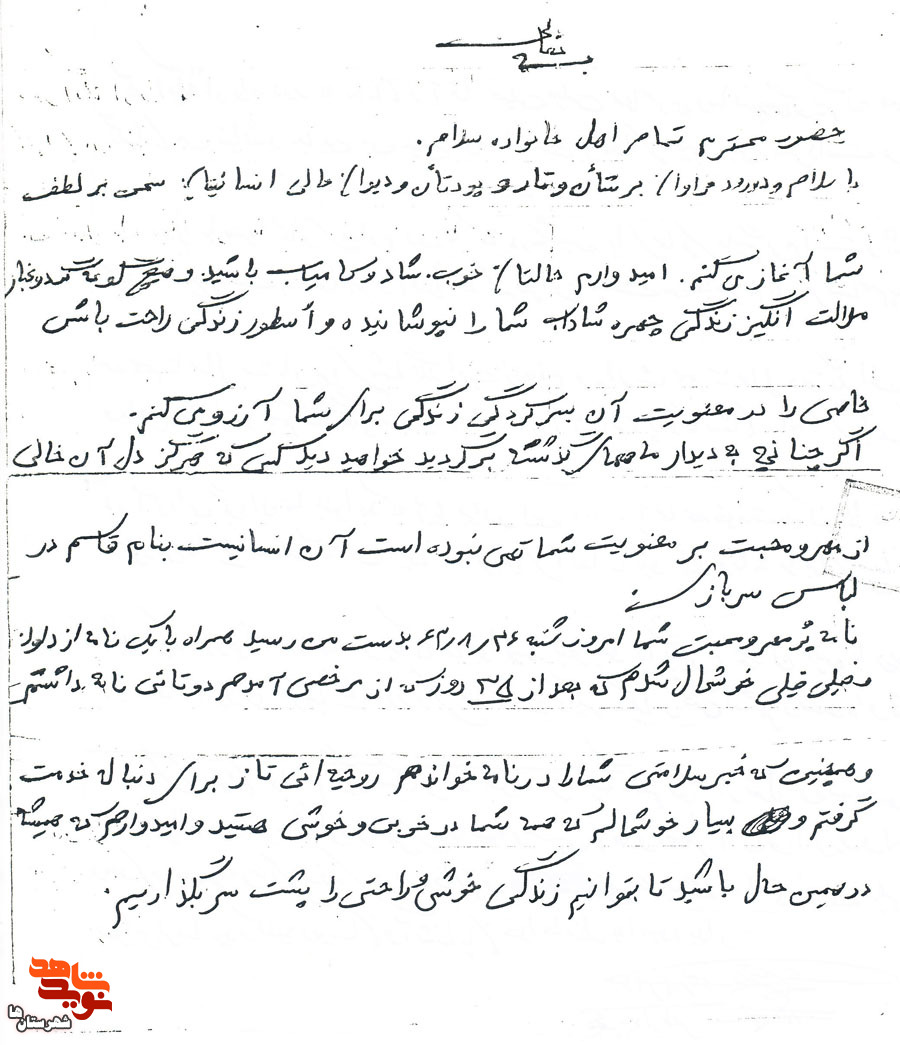 بسمه تعالی
حضور محترم تمام اهل خانواده سلام.
با سلام و درود فراوان بر شتأن و تمار و پودتأن و دیزان خالی انسانیتان سخن بر لطف
شما آغاز می کنم. امیدوارم حالتان خوب. شاد و کامیاب باشید و هیچ گونه گرد و غبار
ملالت انگیز زندگی چهره شاداب شما را نپوشانیده و أسطور زندگی راحت باش
خاصی را در معنویت آن بسر کردگی زندگی برای شما آرزو می کنم.
اگر چنانچه به دیدار ماههای گذشته برگردید خواهید دید کسی که هرگز دل آن خالی
از مهر و محبت بر معنویت شما تهی نبوده است آن انسانیست بنام قاسم در
لباس سربازی
نامه پُر مهر و محبت شما امروز شنبه ۶۳٫۸٫۲۶ بدست من رسید همراه با یک نامه از داود
خیلی خیلی خوشحال شدم که بعد از ۳۵ روز که از مرخصی آمدم دوتائی نامه داشتم
و همچنین که خبر سلامتی شما را در نامه خواندهم روحیه ائی تاز برای دنبال خدمت
گرفتم و بسیار خوشحالم که همه شما در خوبی و خوشی هستید و امیدوارم که همیشه
در همین حال باشید تا بتوانیم زندگی خوشی و راحتی را پشت سر بگذاریم.
نوید شاهد
شهرستان ها